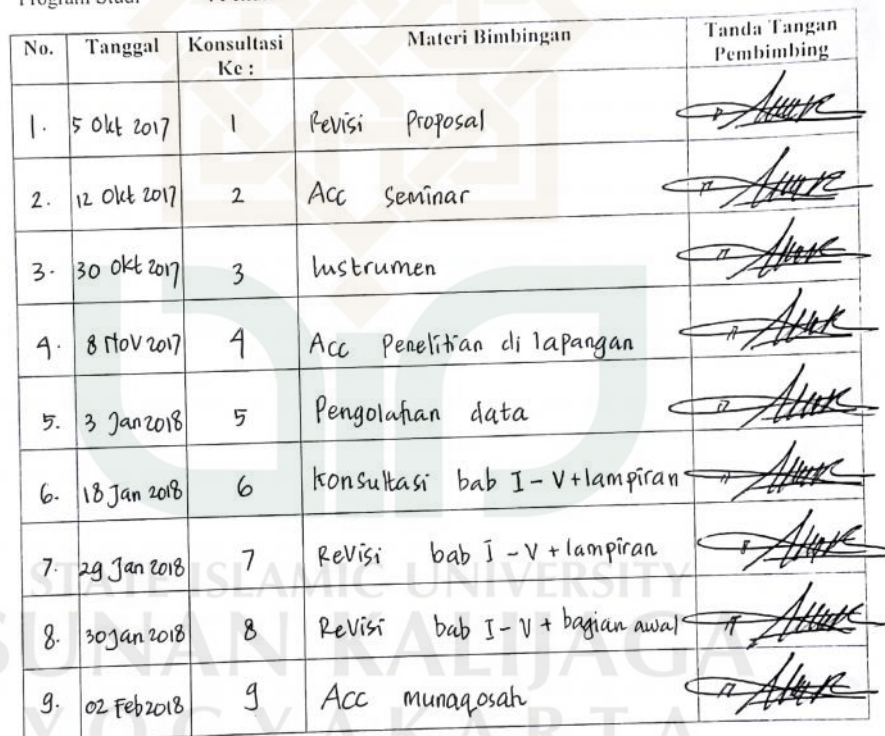 Program Studi
No. Tanggal Konsultasi Ke : Materi Bimbingan Tanda Tangan Pembimbing
1. 5 Okt 2017 1 Revisi Proposal
2. 12 Okt 2017 2 Acc Seminar
3. 30 Okt 2017 3 Instrumen
4. 8 Nov 2017 4 Acc Penelitian di lapangan
5. 3 Jan 2018 5 Pengolahan data
6. 18 Jan 2018 6 konsultasi bab I - V + lampiran
7. 29 Jan 2018 7 Revisi bab I - V + lampiran
8. 30 Jan 2018 8 Revisi bab I - V + bagian awal
9. 02 Feb 2018 9 Acc munaqosah
STATE ISLAMIC UNIVERSITY
SUNAN KALIJAGA
YOGYAKARTA